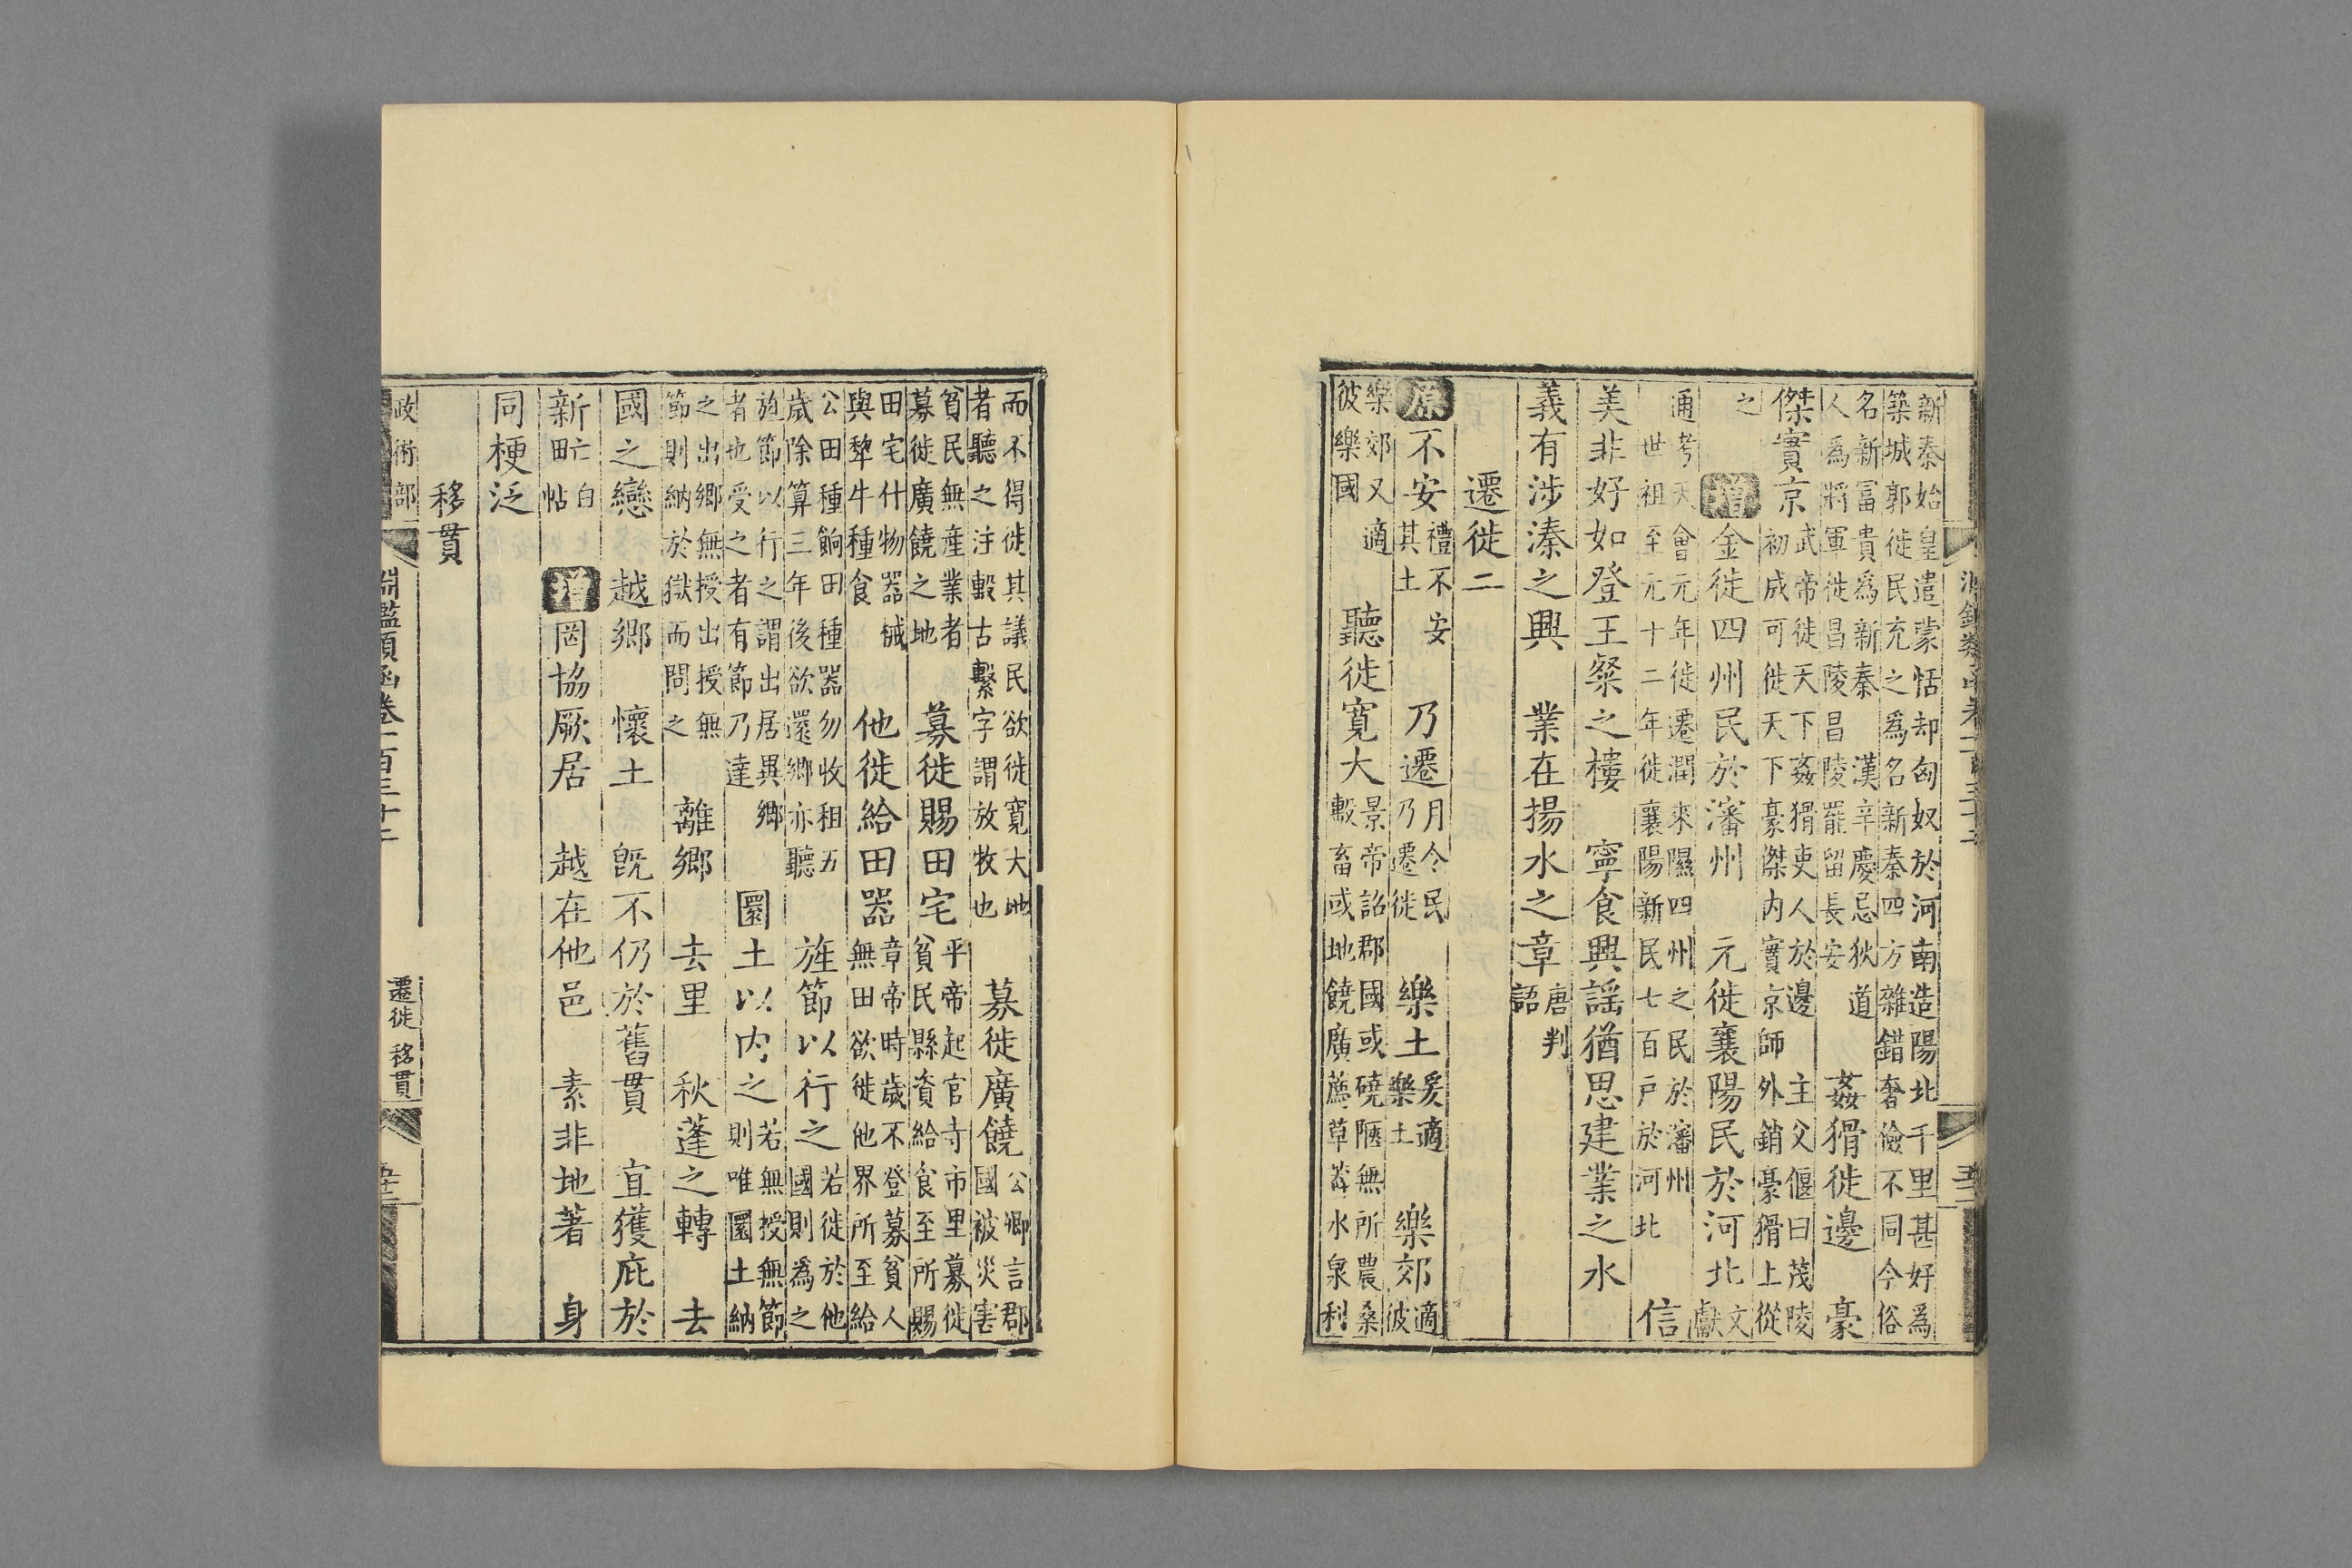 新秦始皇遣蒙恬却匈奴於河南造陽北千里甚好爲
築城郭徙民充之爲名新秦四方雜錯奢儉不同今俗
名新富貴爲新秦　漢辛慶忌狄道
人爲將軍徙昌陵昌陵罷留長安
姦猾徙邊　豪
傑實京
武帝徙天下姦猾吏人於邊　主父偃曰茂陵
初成可徙天下豪傑内實京師外銷豪猾上從
之
增金徙四州民於瀋州　元徙襄陽民於河北
文
獻
通考天會元年徙遷潤來隰四州之民於瀋州
世祖至元十二年徙襄陽新民七百戸於河北
信
美非好如登王粲之樓　寧食興謡猶思建業之水
義有涉溱之興　業在揚水之章
唐判
詔
遷徙二
原不安
禮不安
其土
乃遷
月令民
乃遷徙
樂土
爰適
樂土
樂郊
適
彼
樂郊又適
彼樂國
聽徙寛大
景帝詔郡國或磽陿無所農桑
毄畜或地饒廣薦草莽水泉利
而不得徙其議民欲徙寛大地
者聽之注毄古繫字謂放牧也
募徙廣饒
公卿言郡
國被災害
貧民無産業者
募徙廣饒之地
募徙賜田宅
平帝起官寺市里募徙
貧民縣資給食至所賜
田宅什物器械
與犂牛種食
他徙給田器
章帝時歲不登募貧人
無田欲徙他界所至給
公田種餉田種器勿收租五
歳除算三年後欲還鄉亦聽
旌節以行之
若徙於他
國則爲之
旌節以行之謂出居異鄉
者也受之者有節乃達
圜土以内之
若無授無節
則唯圜土納
之出鄉無授出授無
節則納於獄而問之
離鄉　去里　秋蓬之轉　去
國之戀　越鄉　懷土　既不仍於舊貫　宜獲庇於
新甿
白
帖
增罔協厥居　越在他邑　素非地著　身
同梗泛
移貫
政術部
淵鑑類函卷一百三十二
遷徙　移貫